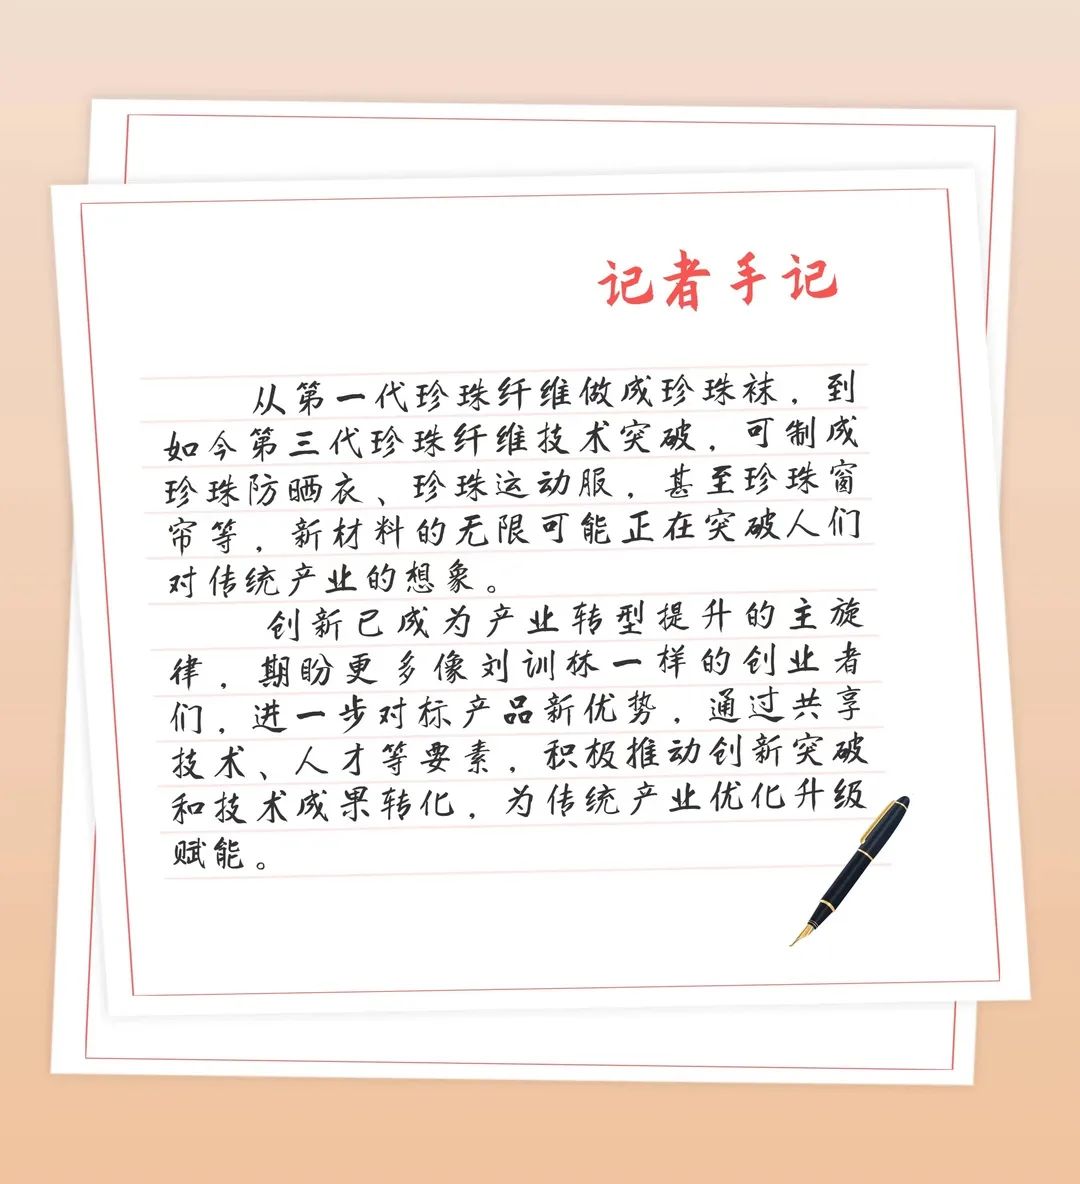 记者手记
从第一代珍珠纤维做成珍珠袜，到
如今第三代珍珠纤维技术突破，可制成
珍珠防晒衣、珍珠运动服，甚至珍珠窗
帘等，新材料的无限可能正在突破人们
对传统产业的想象。
创新已成为产业转型提升的主旋
律，期盼更多像刘训林一样的创业者
们，进一步对标产品新优势，通过共享
技术、人才等要素，积极推动创新突破
和技术成果转化，为传统产业优化升级
赋能。